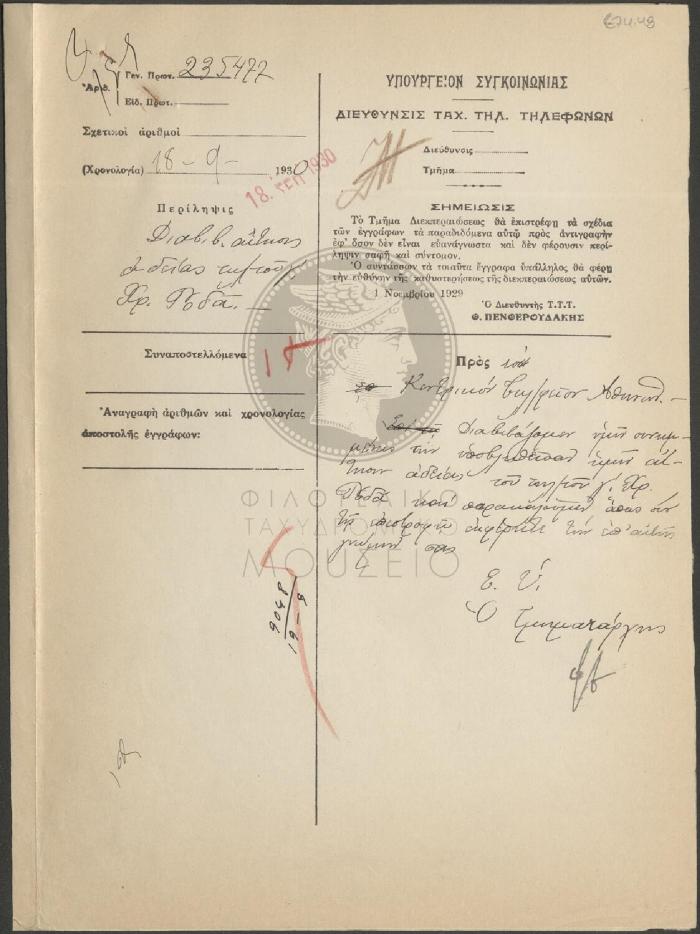 Γεν. Πρωτ. 235477
Ἀριθ.
Εἰδ. Πρωτ.
Σχετικοὶ ἀριθμοὶ
(Χρονολογία) 18 - 9 - 1930
18. ΣΕΠ 1930
Περίληψις
Διαβιβ. αἴτησις
ἀδείας
Χρ. Ροδᾶ. —
Συναποστελλόμενα
Ἀναγραφὴ ἀριθμῶν καὶ χρονολογίας
ἀποστολῆς ἐγγράφων:
9048
19 - 9
ΥΠΟΥΡΓΕΙΟΝ ΣΥΓΚΟΙΝΩΝΙΑΣ
ΔΙΕΥΘΥΝΣΙΣ ΤΑΧ. ΤΗΛ. ΤΗΛΕΦΩΝΩΝ
Διεύθυνσις
Τμῆμα
ΣΗΜΕΙΩΣΙΣ
Τὸ Τμῆμα Διεκπεραιώσεως θὰ ἐπιστρέφῃ τὰ σχέδια
τῶν ἐγγράφων τὰ παραδιδόμενα αὐτῷ πρὸς ἀντιγραφὴν
ἐφ' ὅσον δὲν εἶναι εὐανάγνωστα καὶ δὲν φέρουσιν περί-
ληψιν σαφῆ καὶ σύντομον.
Ὁ συντάσσων τὰ τοιαῦτα ἔγγραφα ὑπάλληλος θὰ φέρῃ
τὴν εὐθύνην τῆς καθυστερήσεως τῆς διεκπεραιώσεως αὐτῶν.
1 Νοεμβρίου 1929
Ὁ Διευθυντὴς Τ.Τ.Τ.
Θ. ΠΕΝΘΕΡΟΥΔΑΚΗΣ
Πρὸς τὸ
Κεντρικὸν Τηλ/φεῖον Ἀθηνῶν. —
Διαβιβάζομεν ὑμῖν συνημ-
μένως τὴν ὑποβληθεῖσαν ἡμῖν αἴ-
τησιν ἀδείας τοῦ Χρ.
Ροδᾶ καὶ παρακαλοῦμεν ὅπως
τῇ ἐπιστροφῇ τὴν ἐπ' αὐτῆς
γνώμην σας
Ε. Υ.
Ὁ Τμηματάρχης
ΦΙΛΟΤΕΛΙΚΟ
ΤΑΧΥΔΡΟΜΙΚΟ
ΜΟΥΣΕΙΟ